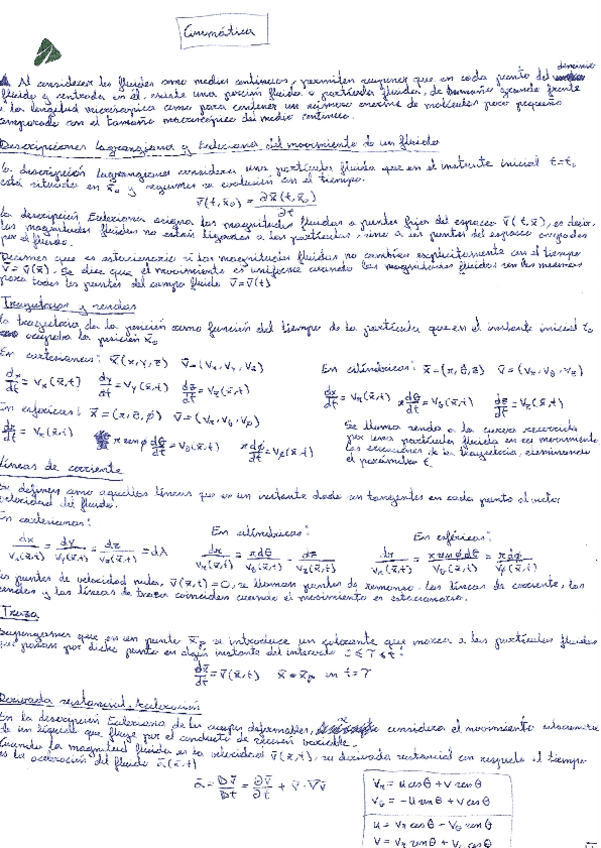 Cinemática
Al considerar los fluidos como medios continuos, permiten suponer que en cada punto del dominio
fluido y centrada en él, existe una porción fluida o partícula fluida, de tamaño grande frente
a la longitud microscópica como para contener un número enorme de moléculas pero pequeño
comparado con el tamaño macroscópico del medio continuo.
Descripciones Lagrangiana y Euleriana del movimiento de un fluido
La descripción Lagrangiana considera una partícula fluida que en el instante inicial t=t₀
está situada en x̄₀ y seguimos su evolución en el tiempo.
v̄(t,x̄₀) = ∂x̄(t,x̄₀)/∂t
La descripción Euleriana asigna las magnitudes fluidas a puntos fijos del espacio v̄(t,x̄), es decir,
las magnitudes fluidas no están ligadas a las partículas, sino a los puntos del espacio ocupados
por el fluido.
Decimos que es estacionario si las magnitudes fluidas no cambian explícitamente con el tiempo
v̄=v̄(x̄). Se dice que el movimiento es uniforme cuando las magnitudes fluidas son las mismas
para todos los puntos del campo fluido v̄=v̄(t)
Trayectorias y sendas
La trayectoria da la posición como función del tiempo de la partícula que en el instante inicial t₀
ocupaba la posición x̄₀
En cartesianas: x̄(x,y,z) v̄=(vx,vy,vz) En cilíndricas: x̄=(r,θ,z) v̄=(vr,vθ,vz)
dx/dt = vx(x̄,t) dy/dt = vy(x̄,t) dz/dt = vz(x̄,t) dr/dt = vr(x̄,t) r dθ/dt = vθ(x̄,t) dz/dt = vz(x̄,t)
En esféricas: x̄=(r,θ,φ) v̄=(vr,vθ,vφ)
dr/dt = vr(x̄,t) r sen φ dθ/dt = vθ(x̄,t) r dφ/dt = vφ(x̄,t)
Se llama senda a la curva recorrida
por una partícula fluida en su movimiento
las ecuaciones de la trayectoria, eliminando
el parámetro t.
Líneas de corriente
Se definen como aquellas líneas que en un instante dado son tangentes en cada punto al vector
velocidad del fluido.
En cartesianas: En cilíndricas: En esféricas:
dx/vx(x̄,t) = dy/vy(x̄,t) = dz/vz(x̄,t) = dλ dr/vr(x̄,t) = r dθ/vθ(x̄,t) = dz/vz(x̄,t) dr/vr(x̄,t) = r sen φ dθ/vθ(x̄,t) = r dφ/vφ(x̄,t)
Los puntos de velocidad nula, v̄(x̄,t)=0, se llaman puntos de remanso. Las líneas de corriente, las
sendas y las líneas de traza coinciden cuando el movimiento es estacionario.
Traza
Supongamos que en un punto x̄p se introduce un colorante que marca a las partículas fluidas
que pasan por dicho punto en algún instante del intervalo 0≤τ≤t:
dx̄/dt = v̄(x̄,t) x̄=x̄p en t=τ
Derivada sustancial. Aceleración
En la descripción Euleriana de los campos deformables, considera el movimiento estacionario
de un líquido que fluye por el conducto de sección variable.
Cuando la magnitud fluida es la velocidad v̄(x̄,t), su derivada sustancial con respecto al tiempo
es la aceleración del fluido ā(x̄,t)
ā = Dv̄/Dt = ∂v̄/∂t + v̄·∇v̄
vr = u cosθ + v senθ
vθ = -u senθ + v cosθ
u = vr cosθ - vθ senθ
v = vr senθ + vθ cosθ